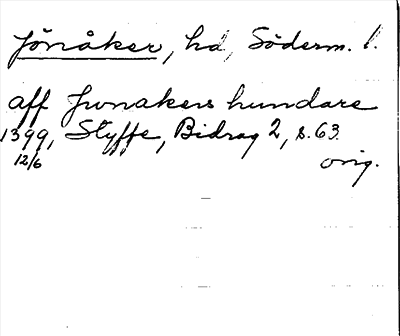 Jönåker, hd, Söderm. l.
aff Junakers hundare
1399, Styffe, Bidrag 2, s. 63.
12/6 orig.